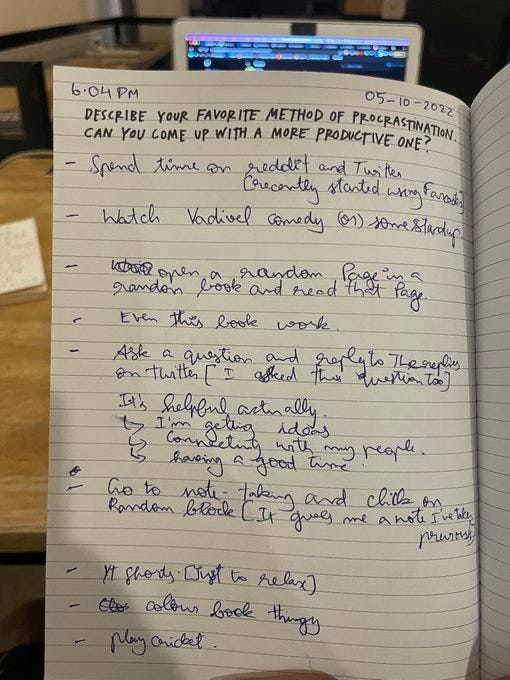 6.04 PM 05-10-2022
DESCRIBE YOUR FAVORITE METHOD OF PROCRASTINATION.
CAN YOU COME UP WITH A MORE PRODUCTIVE ONE?
- Spend time on reddit and Twitter
[recently started using Farcaster]
- Watch Vadivel comedy (or) some standup.
- open a random Page in a
random book and read that Page
- Even this book work.
- Ask a question and reply to The replies
on twitter [I asked this question too]
It's helpful actually.
↳ I'm geting ideas
↳ Connecting with my people.
↳ having a good time.
- Go to note-taking and click on
Random block [It gives me a note I've taken
previously]
- YT shorts. [Just to relax]
- colour book thingy
- play cricket.